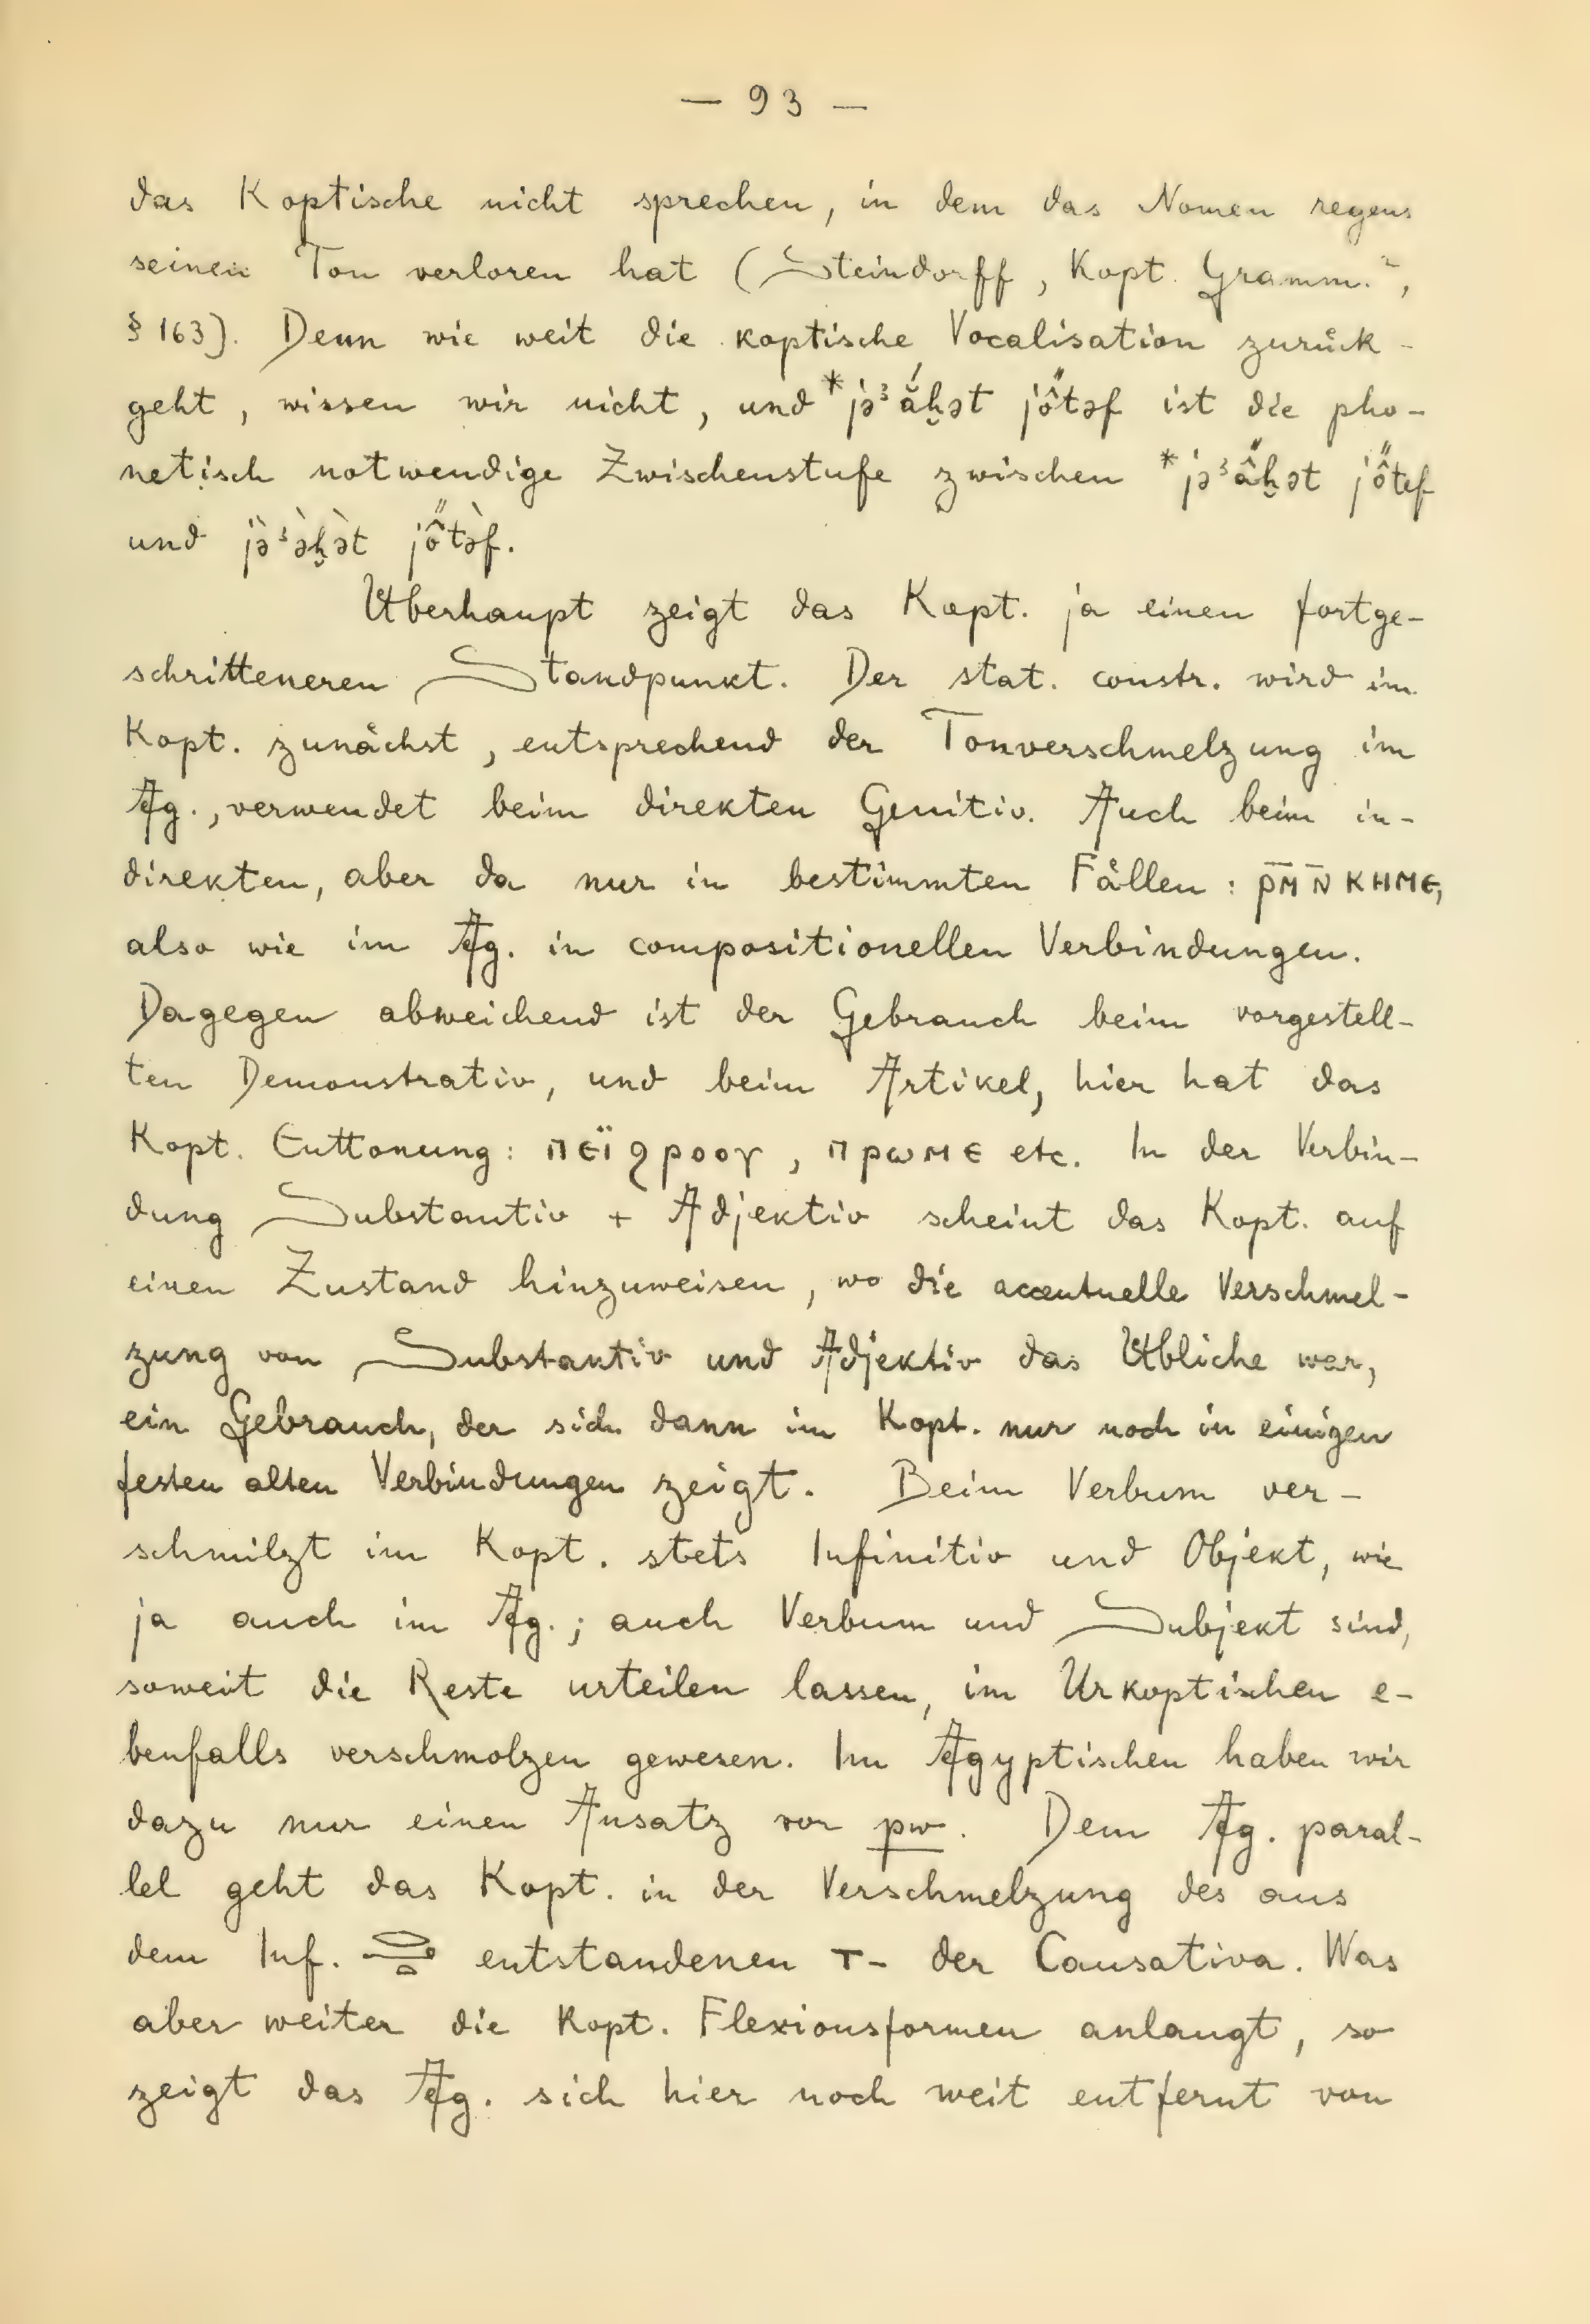 — 93 —
das Koptische nicht sprechen, in dem das Nomen regens
seinen Ton verloren hat (Steindorff, Kopt. Gramm.²,
§ 163). Denn wie weit die koptische Vocalisation zurück-
geht, wissen wir nicht, und *jəꜣắḫət jő̂təf ist die pho-
netisch notwendige Zwischenstufe zwischen *jəꜣâ̋ḫət jő̂tef
und jə̀ꜣə̀ḫə̀t jő̂tə̀f.
Überhaupt zeigt das Kopt. ja einen fortge-
schritteneren Standpunkt. Der stat. constr. wird im
Kopt. zunächst, entsprechend der Tonverschmelzung im
Äg., verwendet beim direkten Genitiv. Auch beim in-
direkten, aber da nur in bestimmten Fällen: ⲣ̅ⲙ̅ⲛ̅ⲕⲏⲙⲉ,
also wie im Äg. in compositionellen Verbindungen.
Dagegen abweichend ist der Gebrauch beim vorgestell-
ten Demonstrativ, und beim Artikel, hier hat das
Kopt. Enttonung: ⲡⲉⲓ̈ϩⲣⲟⲟⲩ, ⲡⲣⲱⲙⲉ etc. In der Verbin-
dung Substantiv + Adjektiv scheint das Kopt. auf
einen Zustand hinzuweisen, wo die accentuelle Verschmel-
zung von Substantiv und Adjektiv das Übliche war,
ein Gebrauch, der sich dann im Kopt. nur noch in einigen
festen alten Verbindungen zeigt. Beim Verbum ver-
schmilzt im Kopt. stets Infinitiv und Objekt, wie
ja auch im Äg.; auch Verbum und Subjekt sind,
soweit die Reste urteilen lassen, im Urkoptischen e-
benfalls verschmolzen gewesen. Im Ägyptischen haben wir
dazu nur einen Ansatz vor pw. Dem Äg. paral-
lel geht das Kopt. in der Verschmelzung des aus
dem Inf. entstandenen ⲧ- der Causativa. Was
aber weiter die Kopt. Flexionsformen anlangt, so
zeigt das Äg. sich hier noch weit entfernt von